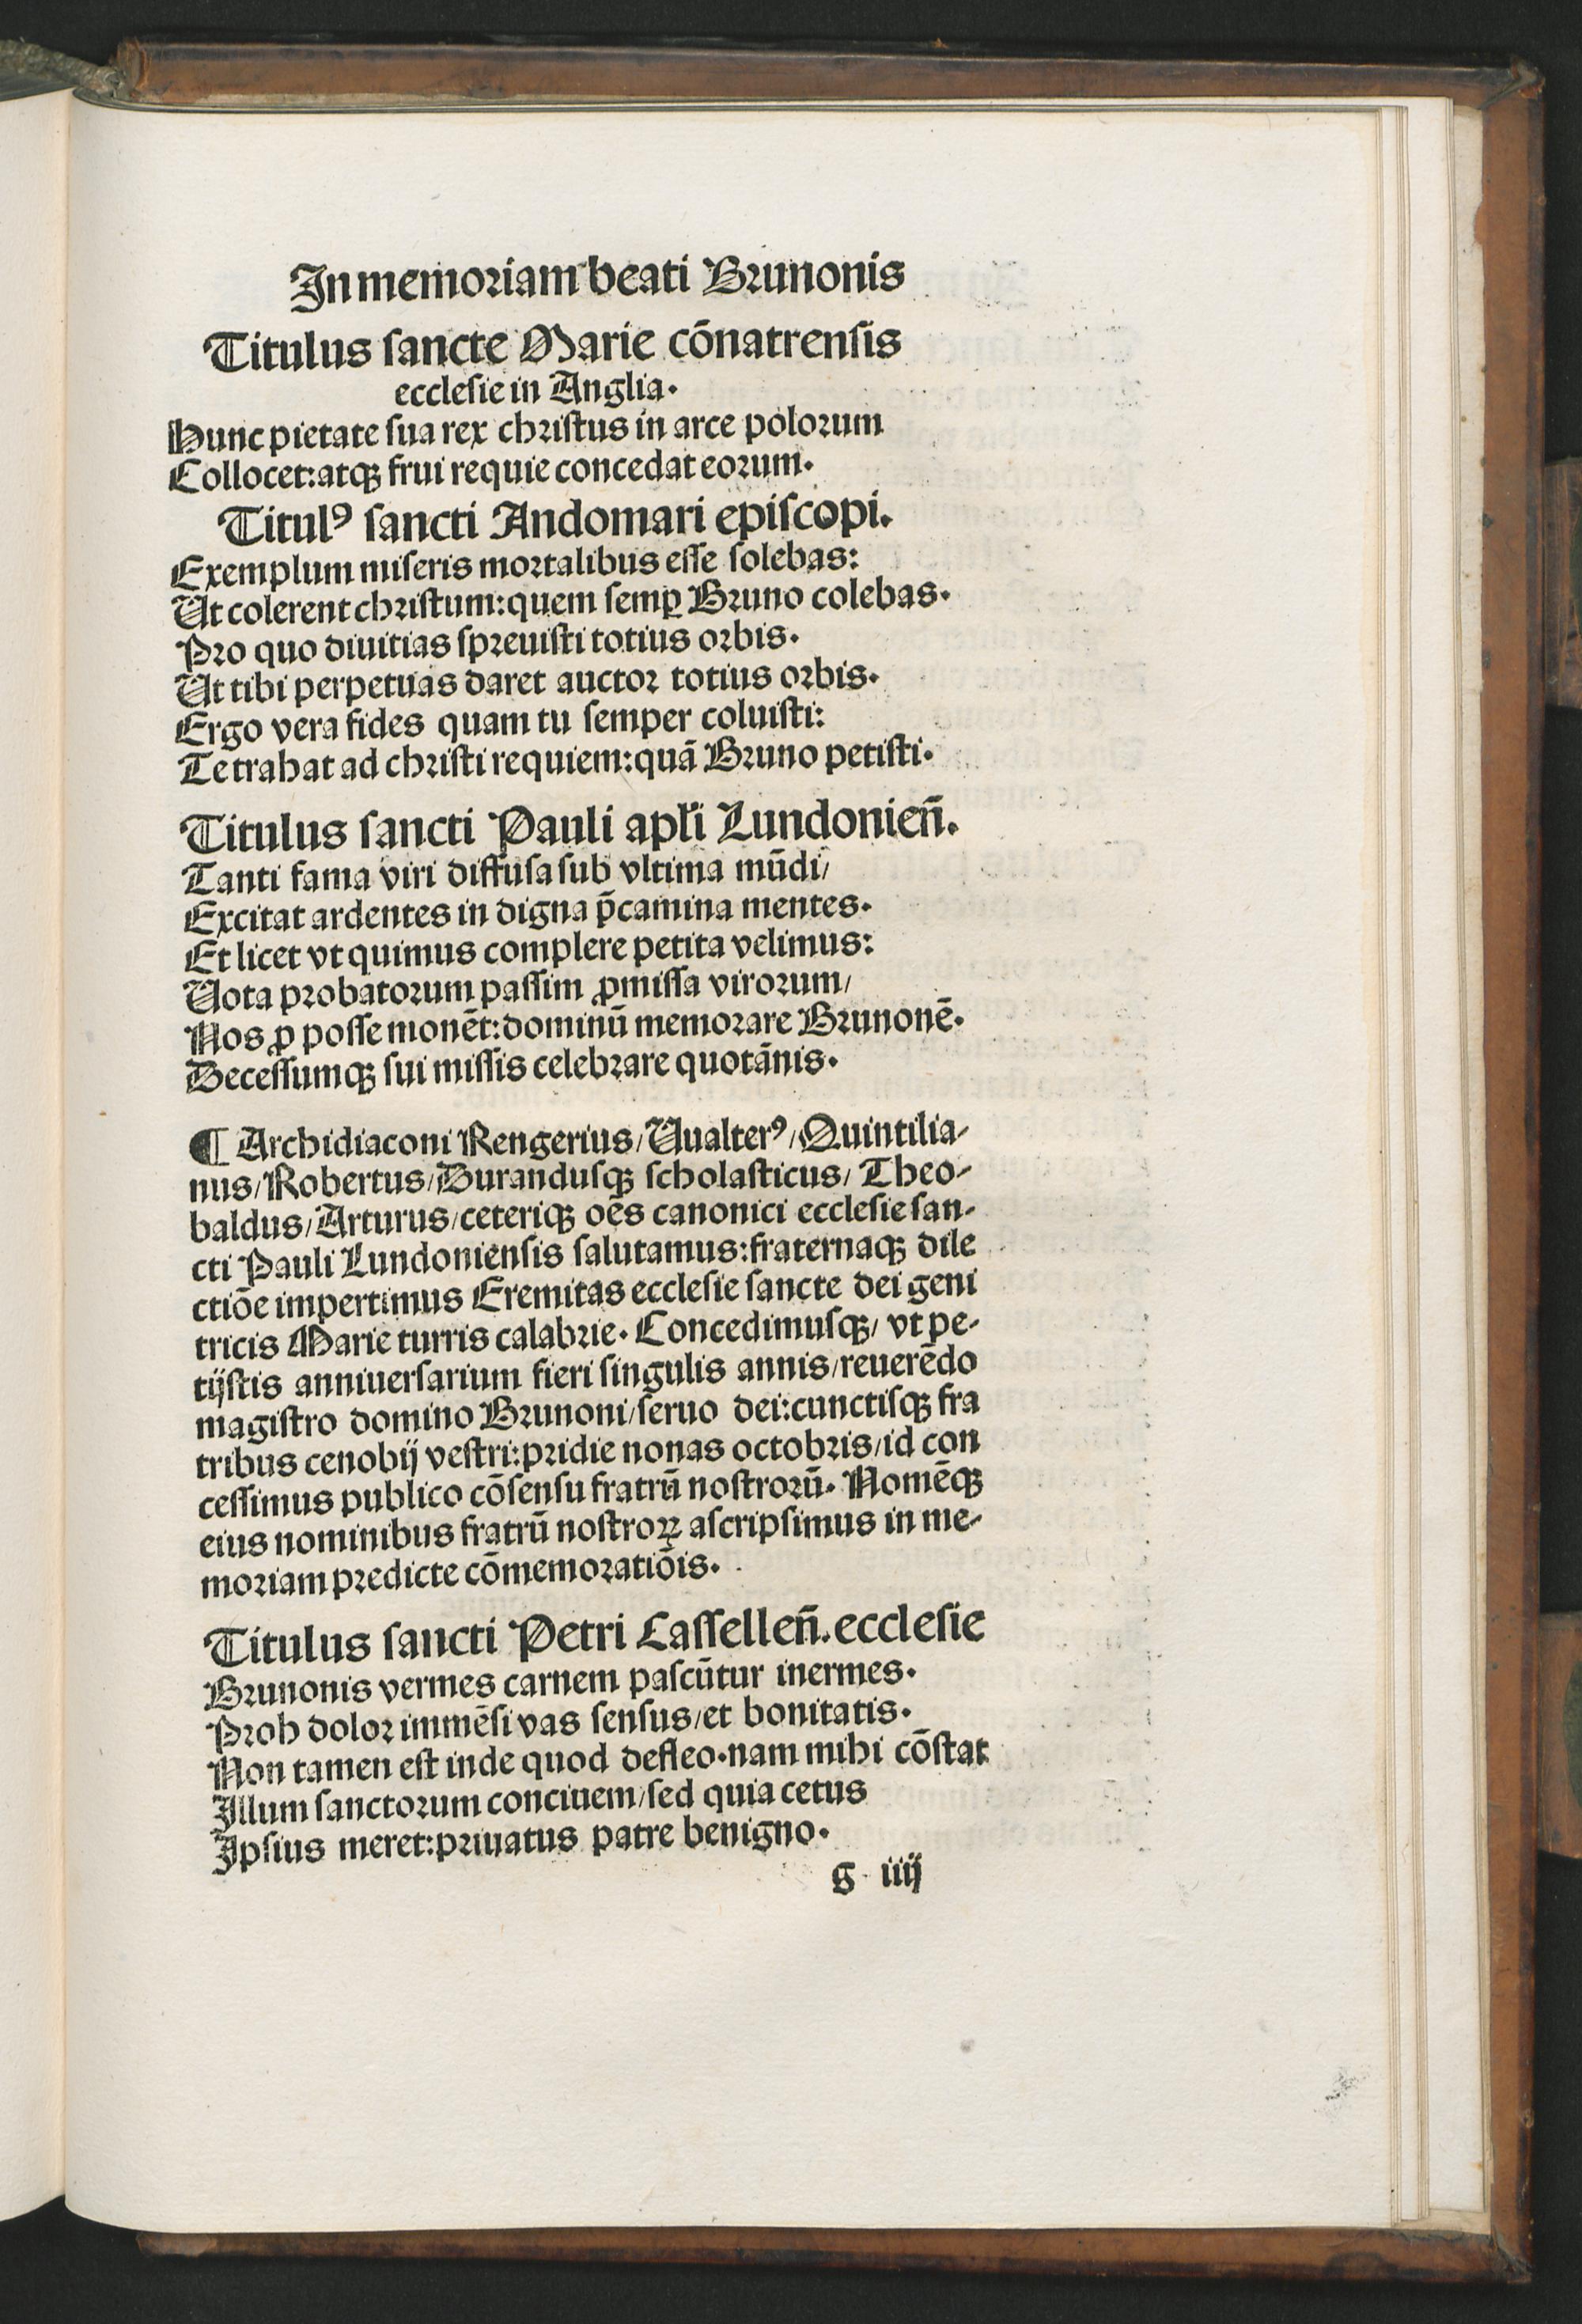 In memoriam beati Brunonis
Titulus sancte Marie cōnatrensis
ecclesie in Anglia.
Hunc pietate sua rex christus in arce polorum
Collocet:atqꝫ frui requie concedat eorum.
Titulꝰ sancti Andomari episcopi.
Exemplum miseris mortalibus esse solebas:
Ut colerent christum:quem semꝑ Bruno colebas.
Pro quo diuitias spreuisti totius orbis.
Ut tibi perpetuas daret auctor totius orbis.
Ergo vera fides quam tu semper coluisti:
Te trahat ad christi requiem:quā Bruno petisti.
Titulus sancti Pauli apłi Lundonieñ.
Tanti fama viri diffusa sub vltima mūdi/
Excitat ardentes in digna p̄camina mentes.
Et licet vt quimus complere petita velimus:
Uota probatorum passim ꝓmissa virorum/
Nos ꝓ posse monēt:dominū memorare Brunonē.
Decessumqꝫ sui missis celebrare quotānis.
¶ Archidiaconi Rengerius/Uualterꝰ/Quintilia-
nus/Robertus/Durandusqꝫ scholasticus/Theo-
baldus/Arturus/ceteriqꝫ oēs canonici ecclesie san-
cti Pauli Lundoniensis salutamus:fraternaqꝫ dile
ctiōe impertimus Eremitas ecclesie sancte dei geni
tricis Marie turris calabrie. Concedimusqꝫ/ vt pe-
tijstis anniuersarium fieri singulis annis/reuerēdo
magistro domino Brunoni/seruo dei:cunctisqꝫ fra
tribus cenobij vestri:pridie nonas octobris/id con
cessimus publico cōsensu fratrū nostrorū. Nomēqꝫ
eius nominibus fratrū nostroꝝ ascripsimus in me-
moriam predicte cōmemoratiōis.
Titulus sancti Petri Casselleñ.ecclesie
Brunonis vermes carnem pascūtur inermes.
Proh dolor immēsi vas sensus/et bonitatis.
Non tamen est inde quod defleo.nam mihi cōstat
Illum sanctorum conciuem/sed quia cetus
Ipsius meret:priuatus patre benigno.
g iiij